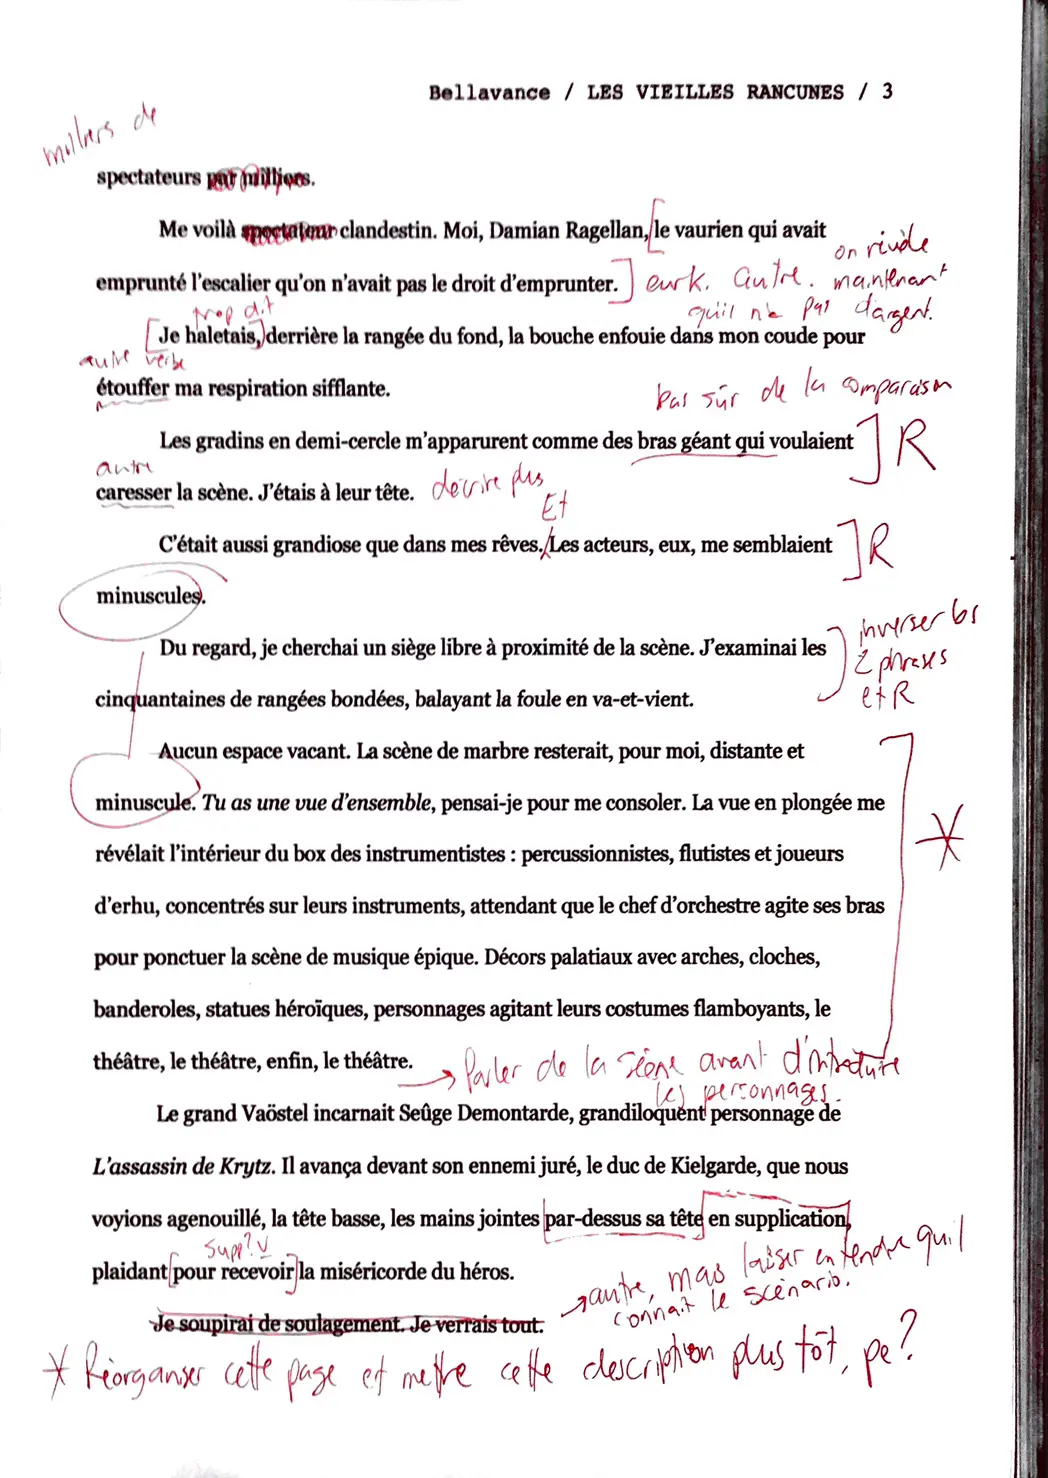 Bellavance / LES VIEILLES RANCUNES / 3
milliers de
spectateurs par millions.
Me voilà spectateur clandestin. Moi, Damian Ragellan, le vaurien qui avait
on révèle
emprunté l'escalier qu'on n'avait pas le droit d'emprunter. eurk. autre. maintenant
trop dit qu'il n'a pas d'argent.
Je haletais, derrière la rangée du fond, la bouche enfouie dans mon coude pour
autre verbe
étouffer ma respiration sifflante.
pas sûr de la comparaison
Les gradins en demi-cercle m'apparurent comme des bras géant qui voulaient R
autre
caresser la scène. J'étais à leur tête. décrire plus
Et
C'était aussi grandiose que dans mes rêves. Les acteurs, eux, me semblaient R
minuscules.
Du regard, je cherchai un siège libre à proximité de la scène. J'examinai les
inverser les
2 phrases
et R
cinquantaines de rangées bondées, balayant la foule en va-et-vient.
Aucun espace vacant. La scène de marbre resterait, pour moi, distante et
minuscule. Tu as une vue d'ensemble, pensai-je pour me consoler. La vue en plongée me
révélait l'intérieur du box des instrumentistes : percussionnistes, flutistes et joueurs
d'erhu, concentrés sur leurs instruments, attendant que le chef d'orchestre agite ses bras
pour ponctuer la scène de musique épique. Décors palatiaux avec arches, cloches,
banderoles, statues héroïques, personnages agitant leurs costumes flamboyants, le
théâtre, le théâtre, enfin, le théâtre. → Parler de la scène avant d'introduire
les personnages.
Le grand Vaöstel incarnait Seûge Demontarde, grandiloquent personnage de
L'assassin de Krytz. Il avança devant son ennemi juré, le duc de Kielgarde, que nous
voyions agenouillé, la tête basse, les mains jointes par-dessus sa tête en supplication,
supp?
plaidant pour recevoir la miséricorde du héros.
→ autre, mais laisser entendre qu'il
connait le scénario.
Je soupirai de soulagement. Je verrais tout.
* Réorganiser cette page et mettre cette description plus tôt, pe?